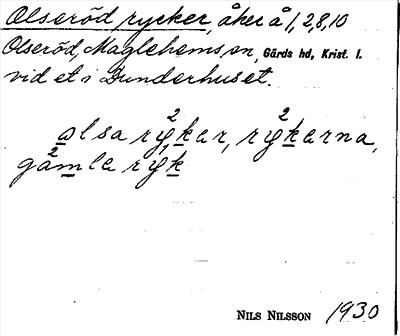 Olseröd rycker, åker å 1, 2, 8, 10
Olseröd, Maglehems sn, Gärds hd, Krist. l.
vid et i Dunderhuset.
olsa rykar, rykarna,
gamla ryk
NILS NILSSON 1930